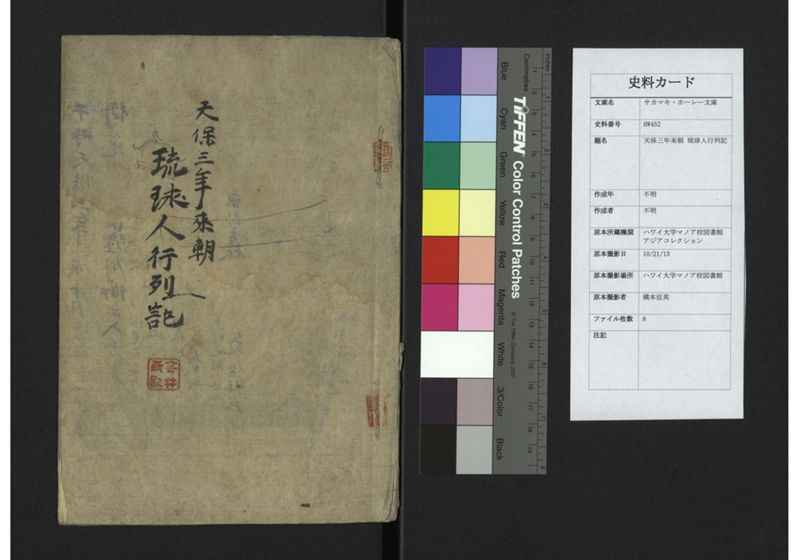 天保三年来朝
琉球人行列記
Blue
Cyan
Green
Yellow
Red
Magenta
White
3/Color
Black
TIFFEN Color Control Patches
© The Tiffen Company, 2007
Centimetres
Inches
史料カード
文庫名 サカマキ・ホーレー文庫
史料番号 HW452
題名 天保三年来朝 琉球人行列記
作成年 不明
作成者 不明
原本所蔵機関 ハワイ大学マノア校図書館
アジアコレクション
原本撮影日 10/21/13
原本撮影場所 ハワイ大学マノア校図書館
原本撮影者 横本征英
ファイル枚数 8
注記